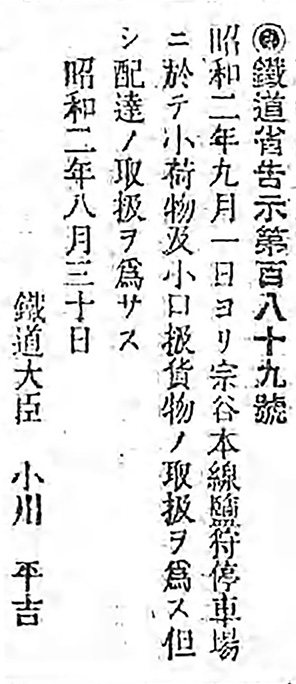 鐵道省告示第百八十九號
昭和二年九月一日ヨリ宗谷本線鹽狩停車場
ニ於テ小荷物及小口扱貨物ノ取扱ヲ爲ス但
シ配達ノ取扱ヲ爲サス
昭和二年八月三十日
鐵道大臣 小川 平吉